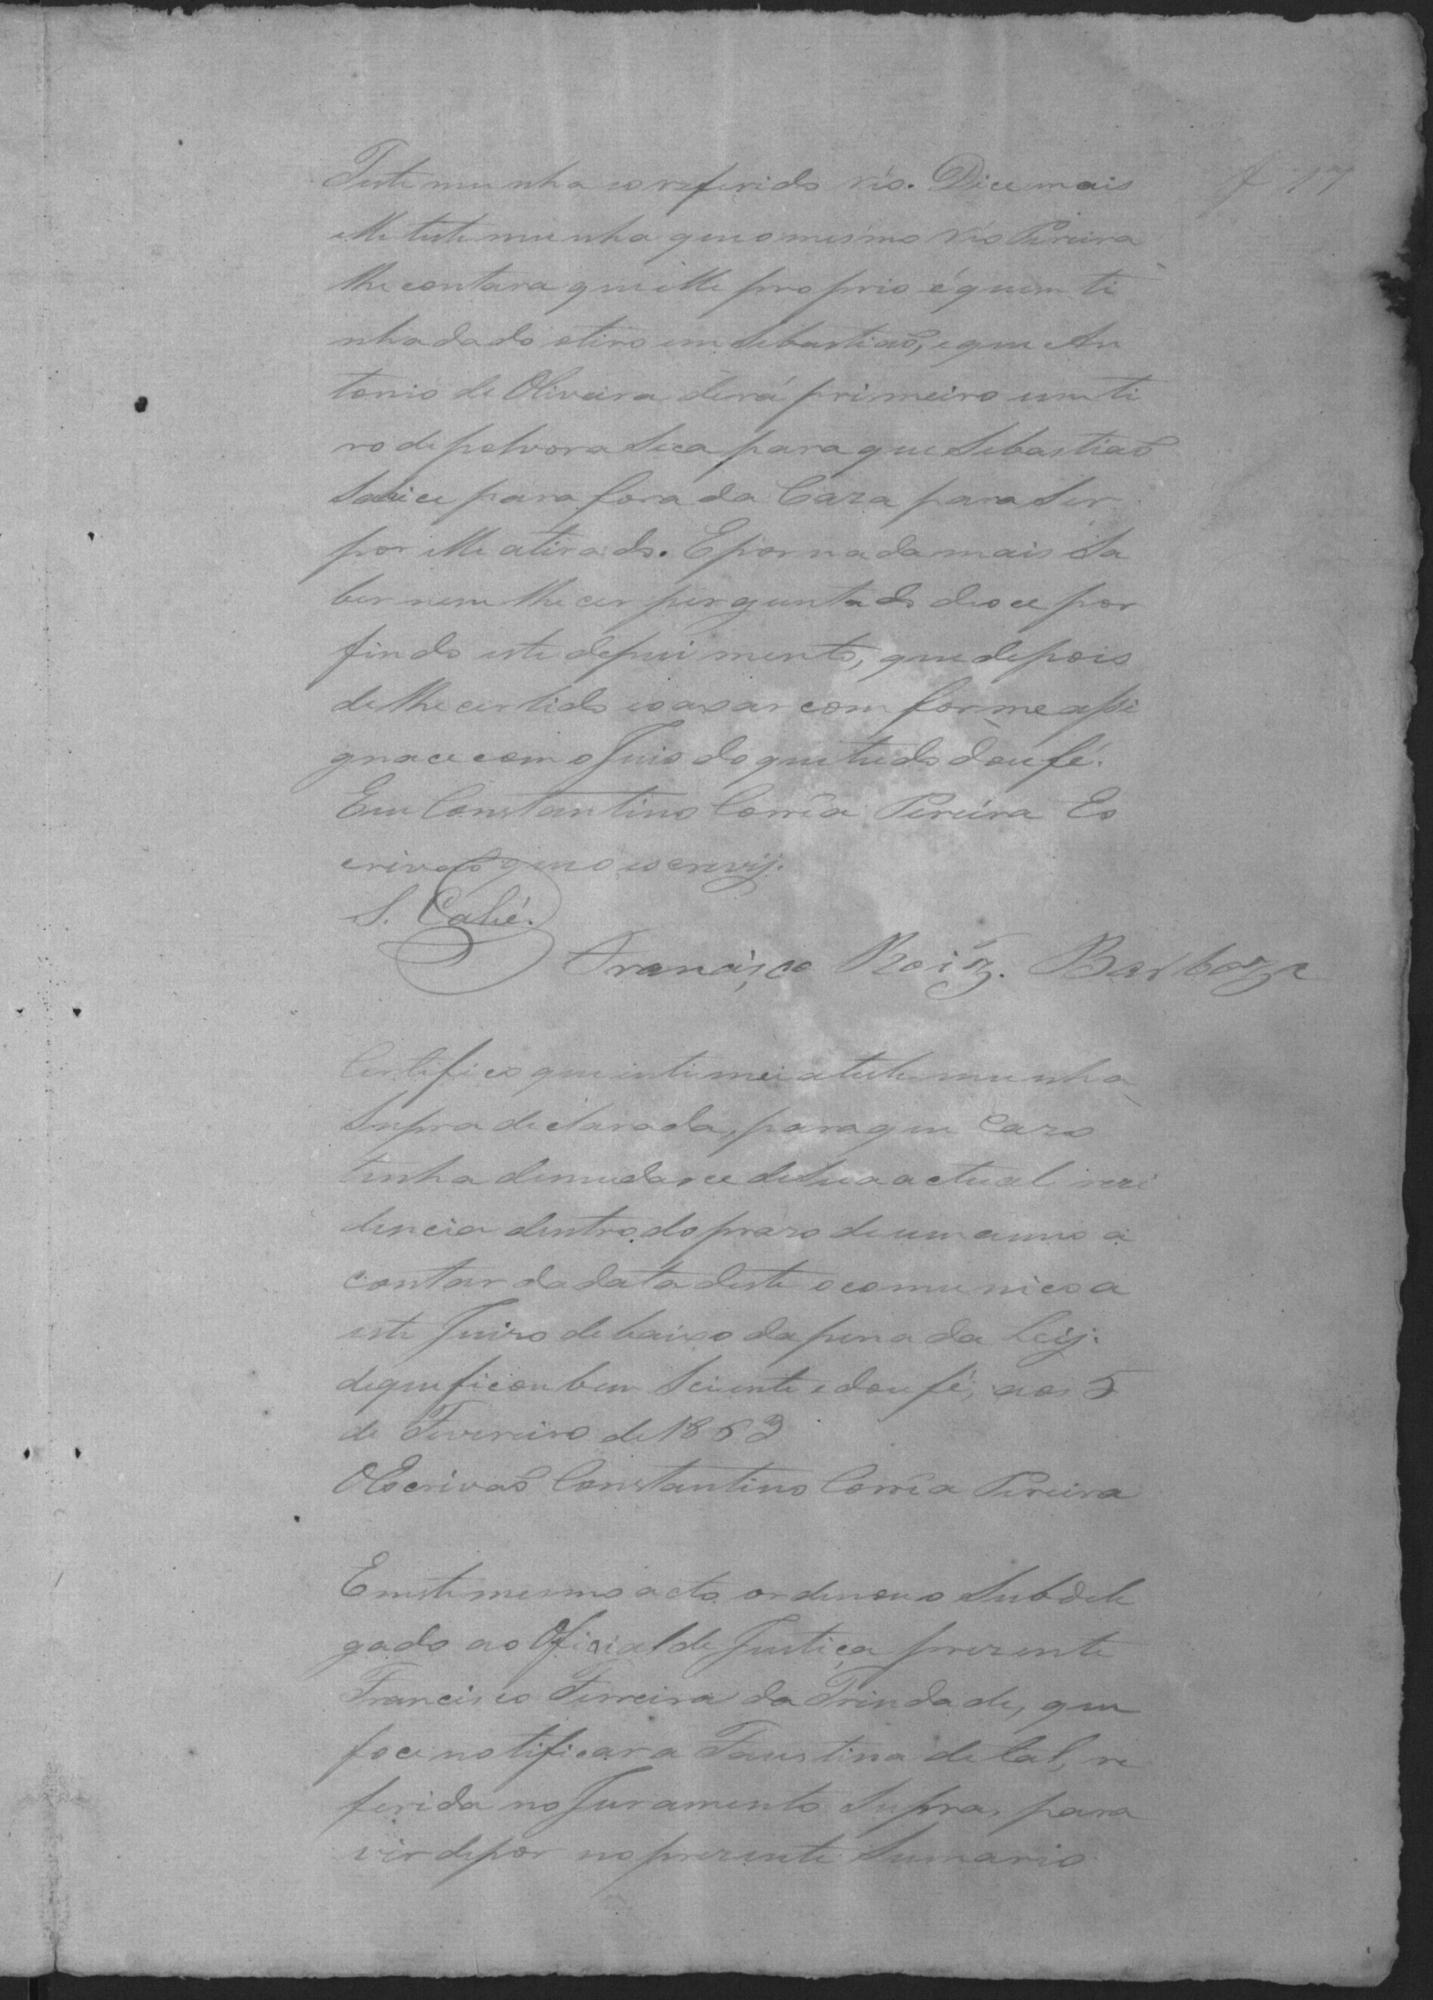 f 17
Testemunha eo referido réo. Dice mais
elle testemunha que o mesmo réo Pereira
lhe contara que elle proprio é quem ti
nha dado otiro em Sebastiaõ, e que An
tonio de Oliveira derá primeiro um ti
ro de polvora seca para que Sebastiaõ
Sahice para fora da Caza para Ser
por elle atirado. E por nada mais Sa
ber nem lhe cer perguntado dice por
findo este depuimento, que depois
de lhe cer lido eo axar comforme assi
gnace com o Juis do que tudo dou fé.
Eu Constantino Corrêa Pereira Es
crivaõ que o escrevij.
S. Calié.
Francisco Roiz. Barboza
Certifico que intimei a testemunha
Supra declarada, para que Cazo
tenha de mudarce de Sua actual rezi
dencia dentro do prazo de um anno a
contar da data deste o comunico a
este Juizo debaixo da pena da Leij.
de que ficou bem Sciente e dou fé, aos 5
de Fevereiro de 1863
O Escrivaõ Constantino Corrêa Pereira
E neste mesmo acto ordenou o Subdele
gado ao Oficial de Justiça prezente
Francisco Ferreira da Trindade, que
foce notificar a Faustina de tal, re
ferida no Juramento Supra, para
vir depor no prezente Sumario